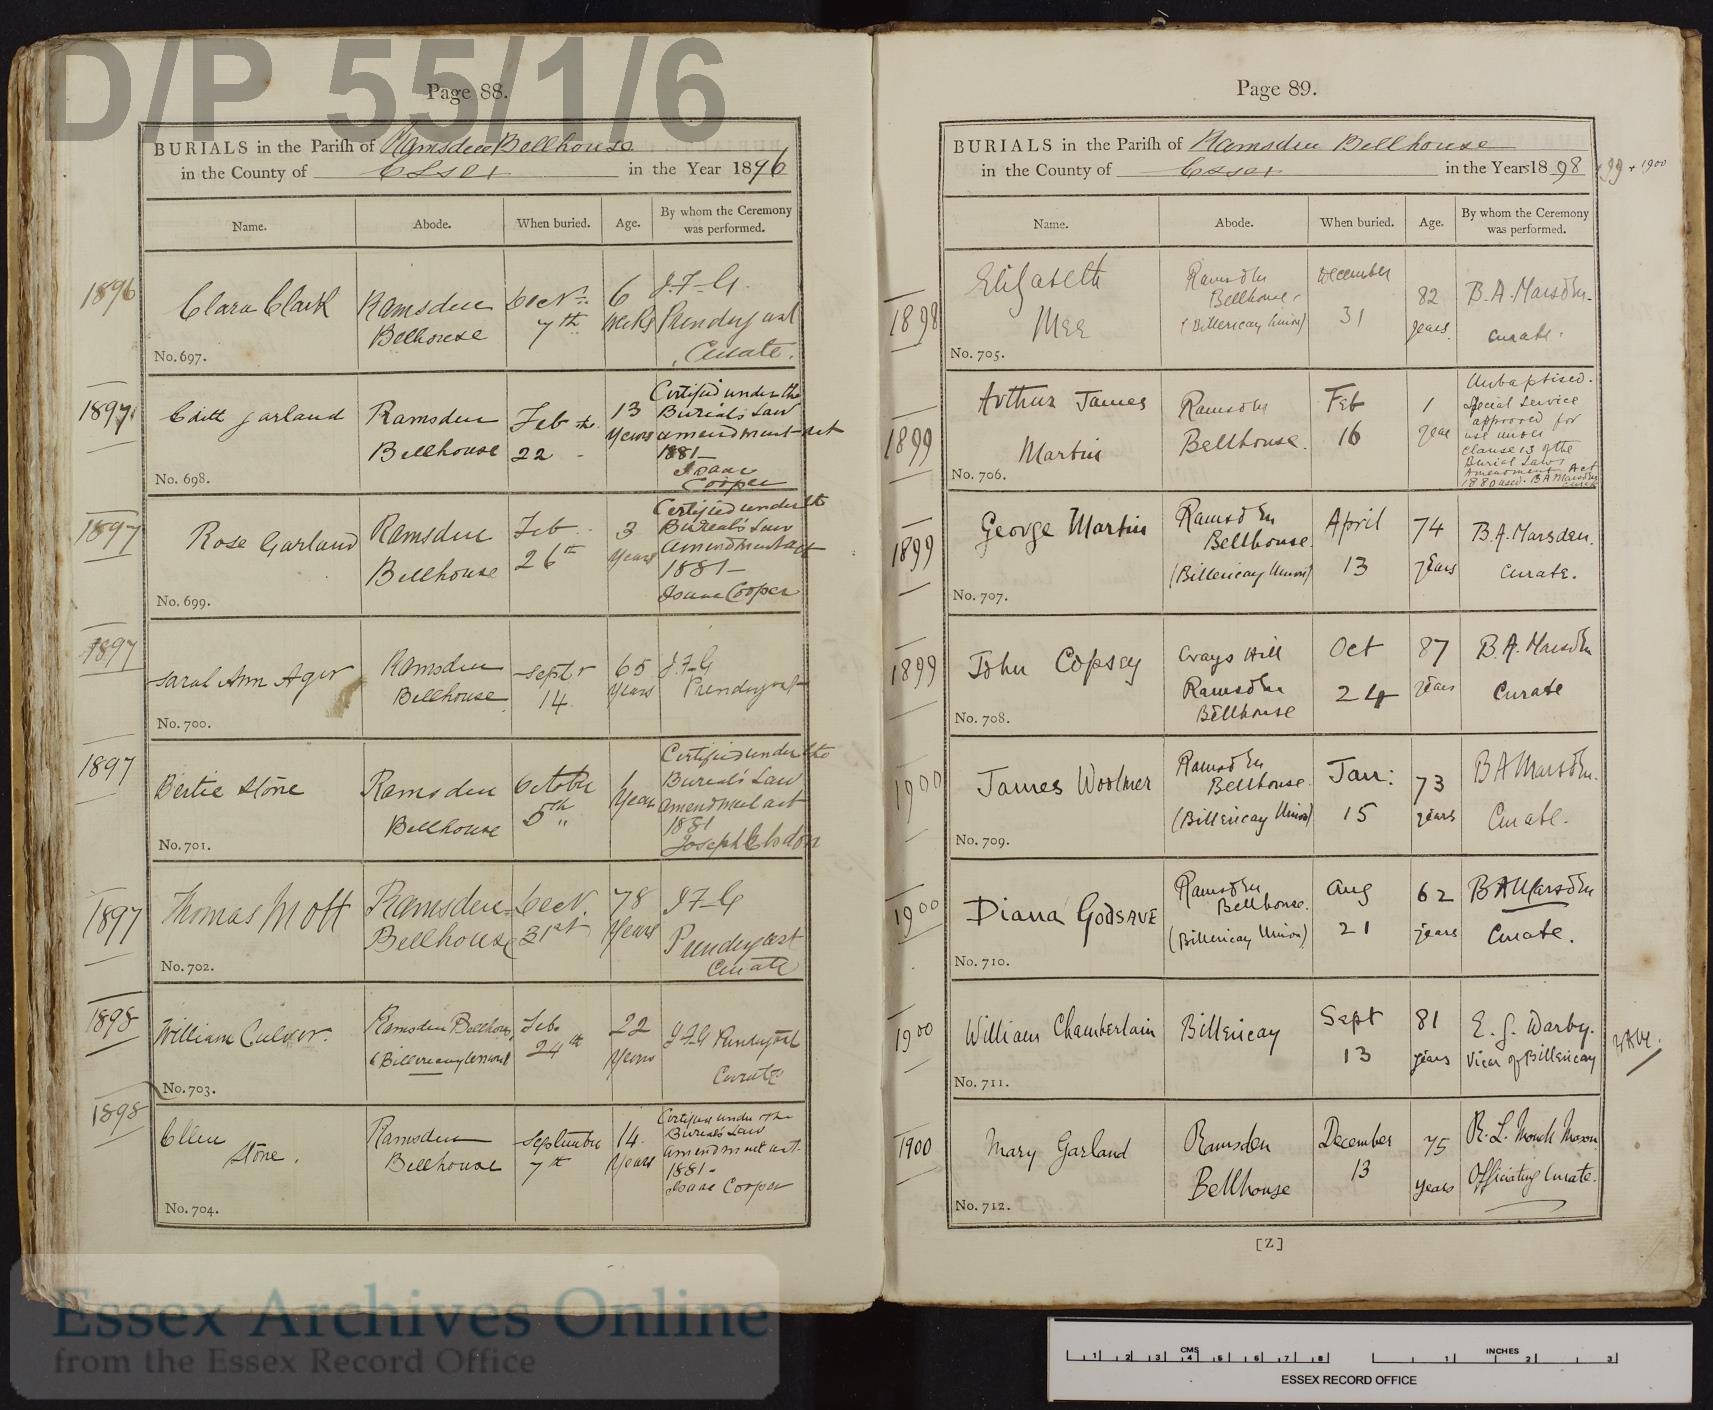 D/P 55/1/6
Page 88.
BURIALS in the Parish of Ramsden Bellhouse
in the County of Essex in the Year 1896
Name. Abode. When buried. Age. By whom the Ceremony was performed.
1896
Clara Clark
Ramsden
Bellhouse
Decr.
7th
6
weeks
J.F-G.
Prendergast
Curate.
No. 697.
1897
Edith Garland
Ramsden
Bellhouse
Feb
22
13
Years
Certified under the
Burials Law
amendment act
1881-
Isaac
Cooper
No. 698.
1897
Rose Garland
Ramsden
Bellhouse
Feb
26th
3
Years
Certified under the
Burials Law
amendment act
1881-
Isaac Cooper
No. 699.
1897
Sarah Ann Ager
Ramsden
Bellhouse
Septr
14
65
Years
J.F-G
Prendergast
No. 700.
1897
Bertie Stone
Ramsden
Bellhouse
October
5th
1
Year
Certified under the
Burials Law
amendment act
1881
Joseph
No. 701.
1897
Thomas Mott
Ramsden
Bellhouse
Decr.
31st
78
Years
J.F-G
Prendergast
Curate
No. 702.
1898
William Culver.
Ramsden Bellhouse
(Billericay Union)
Feb.
24th
22
Years
J.F-G Prendergast
Curate
No. 703.
1898
Ellen
Stone.
Ramsden
Bellhouse
September
7th
14
Years
Certified under the
Burials Law
amendment act.
1881-
Isaac Cooper
No. 704.
Page 89.
BURIALS in the Parish of Ramsden Bellhouse
in the County of Essex in the Years 1898 + 99 + 1900
Name. Abode. When buried. Age. By whom the Ceremony was performed.
1898
Elizabeth
Mee
Ramsden
Bellhouse.
(Billericay Union)
December
31
82
years.
B.A. Marsden.
Curate.
No. 705.
1899
Arthur James
Martin
Ramsden
Bellhouse.
Feb
16
1
year
Unbaptised.
Special Service
approved for
use under
Clause 13 of the
Burial Laws
Amendment Act
1880 used. B A Marsden
Curate
No. 706.
1899
George Martin
Ramsden
Bellhouse.
(Billericay Union)
April
13
74
years
B.A. Marsden.
Curate.
No. 707.
1899
John Copsey
Crays Hill
Ramsden
Bellhouse
Oct
24
87
years
B.A. Marsden
Curate
No. 708.
1900
James Woolmer
Ramsden
Bellhouse.
(Billericay Union)
Jan:
15
73
years
B A Marsden.
Curate.
No. 709.
1900
Diana Godsave
Ramsden
Bellhouse.
(Billericay Union)
Aug
21
62
years
B A Marsden
Curate.
No. 710.
1900
William Chamberlain
Billericay
Sept
13
81
years
E. G. Darby.
Vicar of Billericay
No. 711.
1900
Mary Garland
Ramsden
Bellhouse
December
13
75
years
R. L. Monck Mason
Officiating Curate.
No. 712.
[Z]
Essex Archives Online
from the Essex Record Office
CMS
1 2 3 4 5 6 7 8
INCHES
1 2 3
ESSEX RECORD OFFICE